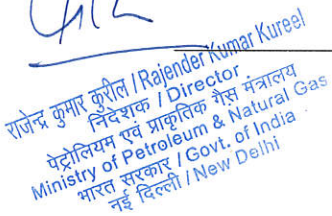 राजेन्द्र कुमार कुरील / Rajender Kumar Kureel
निदेशक / Director
पेट्रोलियम एवं प्राकृतिक गैस मंत्रालय
Ministry of Petroleum & Natural Gas
भारत सरकार / Govt. of India
नई दिल्ली / New Delhi